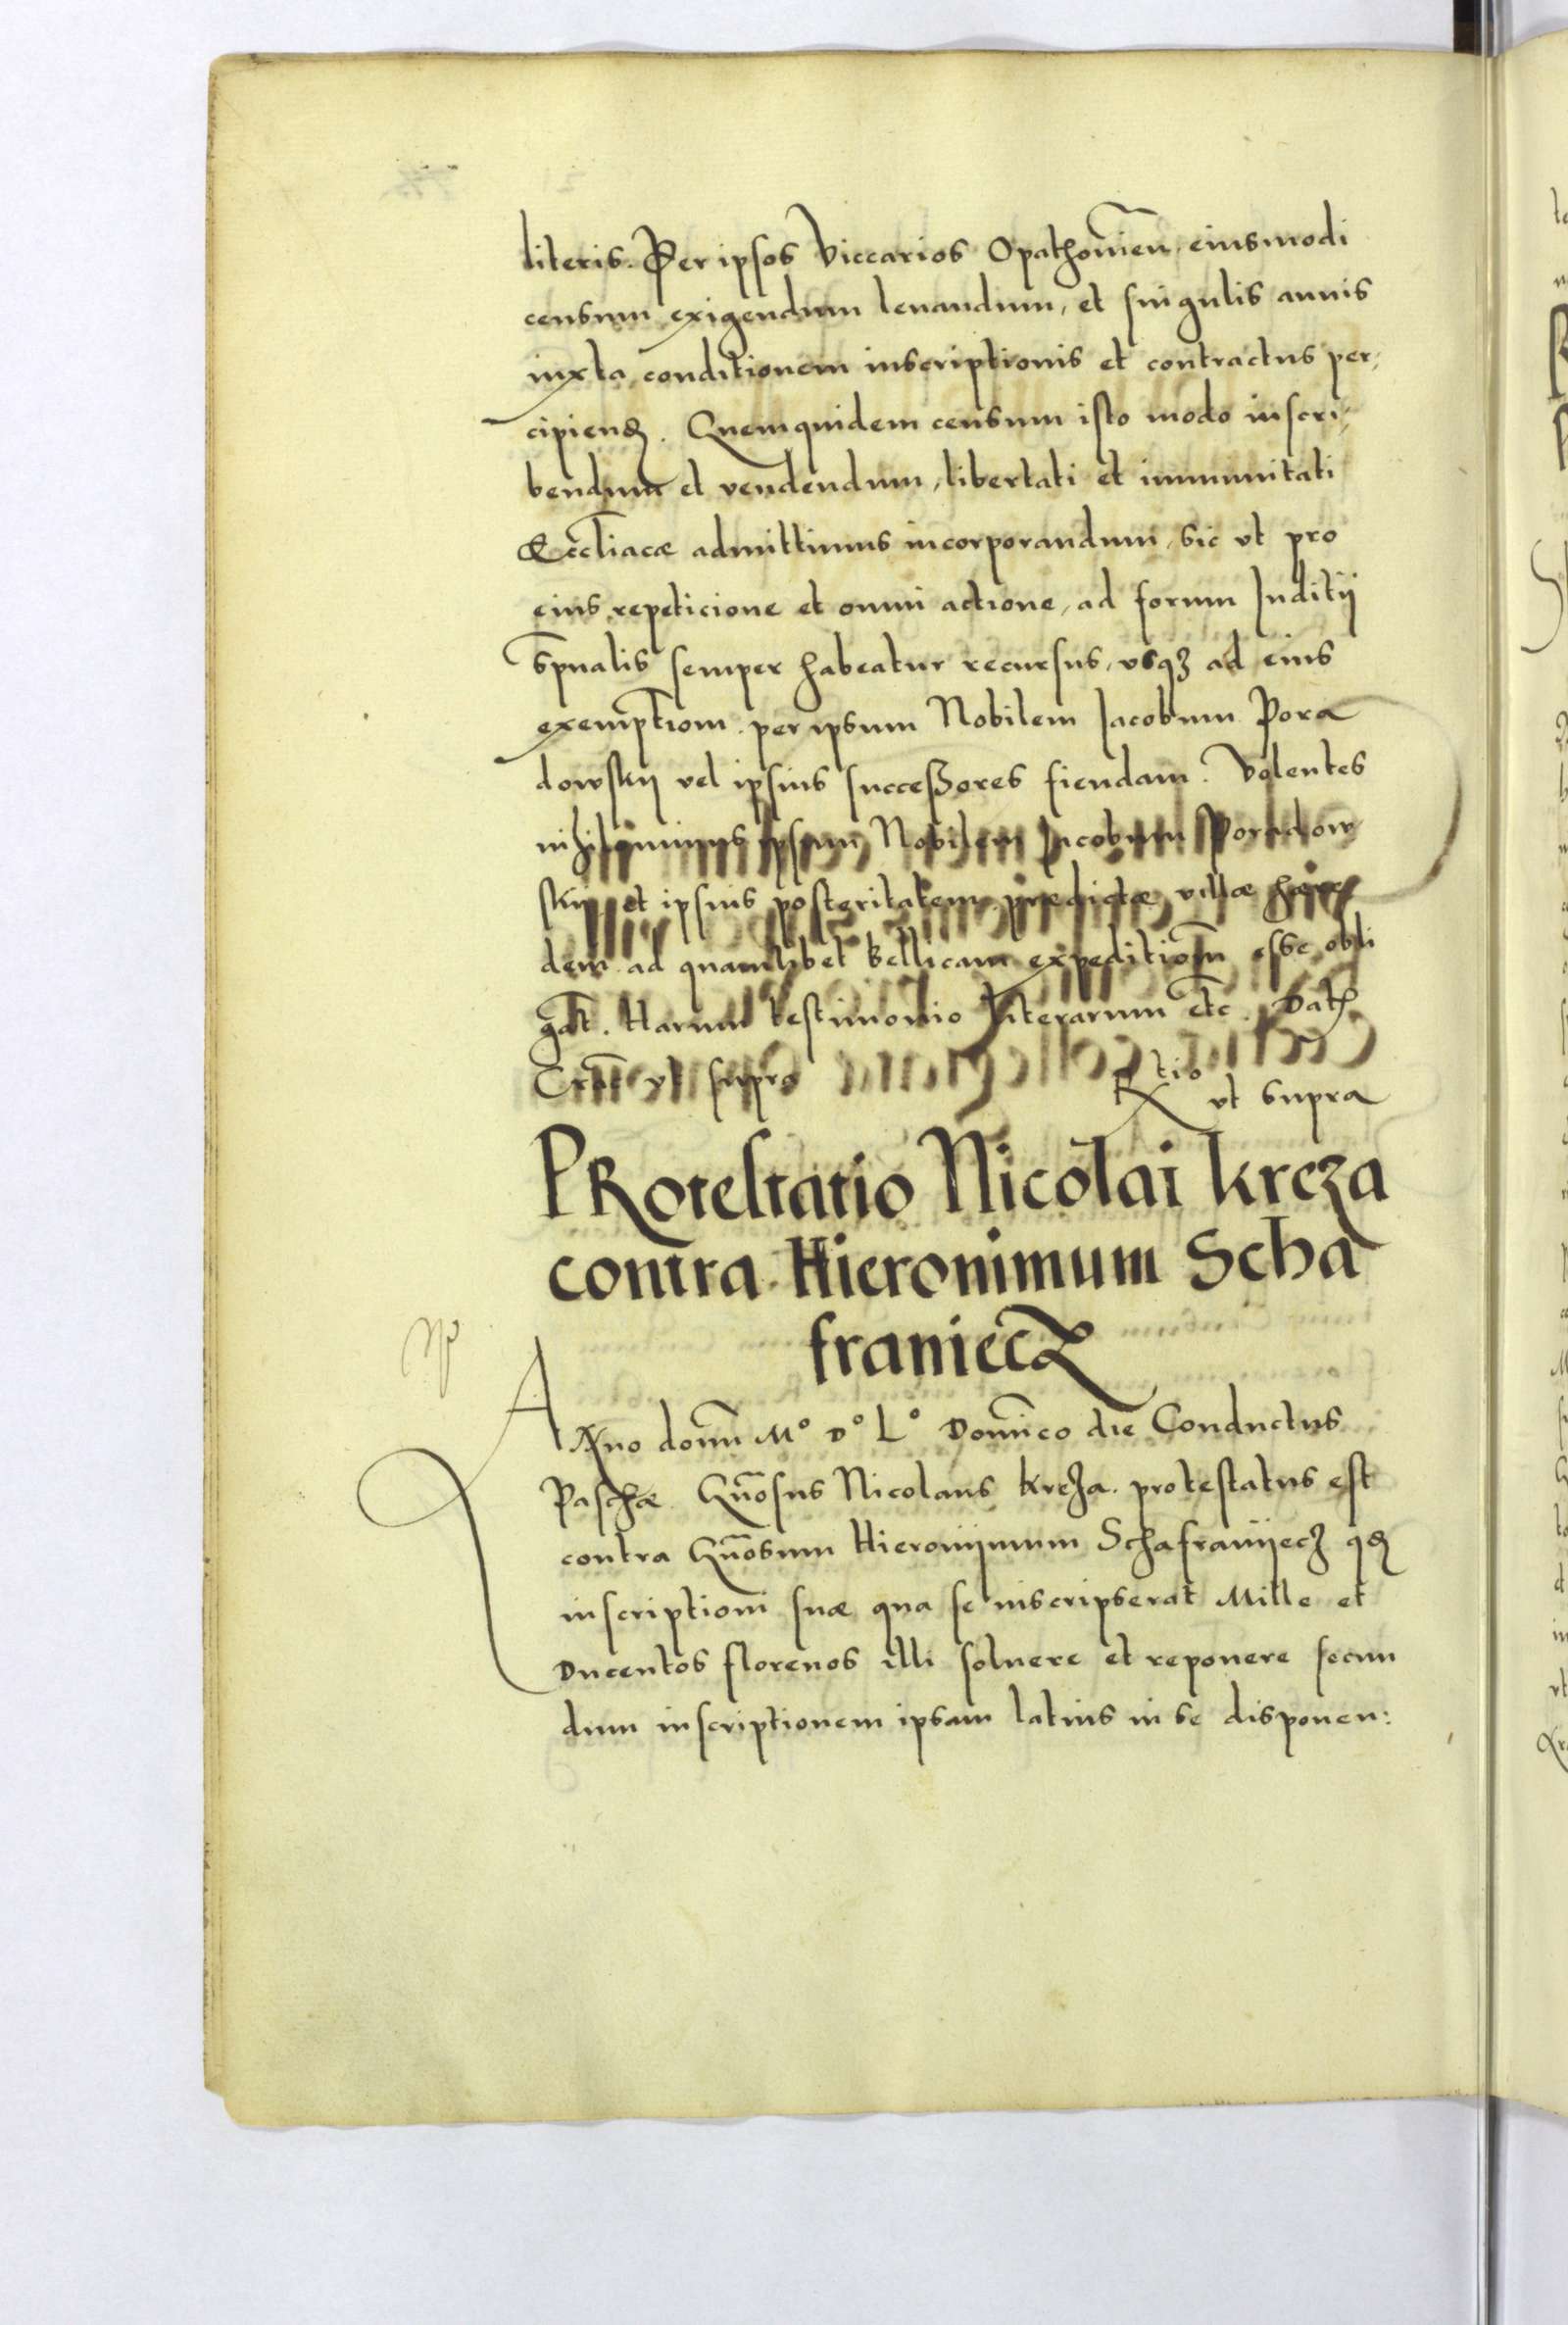 literis. Per ipsos Viccarios Opathovien. eiusmodi
censum exigendum levandum, et singulis annis
iuxta conditionem inscriptionis et contractus per,
cipiend. Quemquidem censum isto modo inscri,
bendum et vendendum, libertati et immunitati
Eccliacæ admittimus incorporandum, sic vt pro
eius repeticione et omni actione, ad forum Iuditij
Spualis semper habeatur recursus, vsqz ad eius
exemptiom. per ipsum Nobilem Iacobum Pora
dowskij vel ipsius successores fiendam. Volentes
nihilominus ipsum Nobilem Iacobum Poradow
skij et ipsius posteritatem predictæ villæ hære
dem ad quamlibet bellicam expeditiom esse obli
gat. Harum testimonio literarum etc. Dat
Crac vt supra
Rtio vt supra
PRotestatio Nicolai Kreza
contra Hieronimum Scha
franiecz
Anno domi Mo Do Lo Domico die Conductus
Paschæ Gnosus Nicolaus Kreza. protestatus est
contra Gnosum Hieronijmum Schafranijecz qd
inscriptioni suæ qua se inscripserat Mille et
Ducentos florenos illi soluere et reponere secun
dum inscriptionem ipsam latius in se disponen: